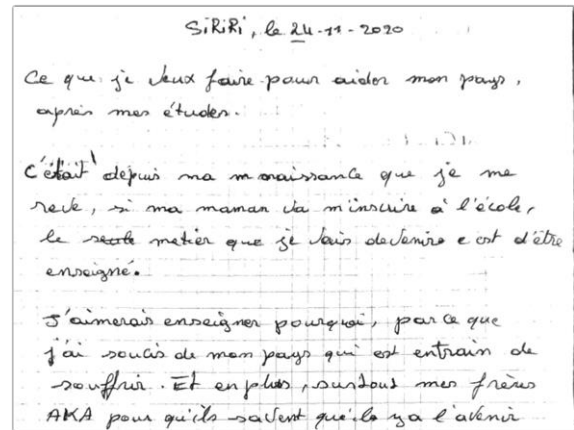 SiRiRi, le 24-11-2020
Ce que je veux faire pour aider mon pays,
après mes études.
C'était depuis ma naissance que je me
reve, si ma maman va m'inscrire à l'école,
le metier que je vais devenire c'est d'être
enseigné.
J'aimerais enseigner pourquoi, parce que
j'ai soucis de mon pays qui est entrain de
souffrir. Et en plus, surtout mes frères
AKA pour qu'ils savent qu'ils y a l'avenir